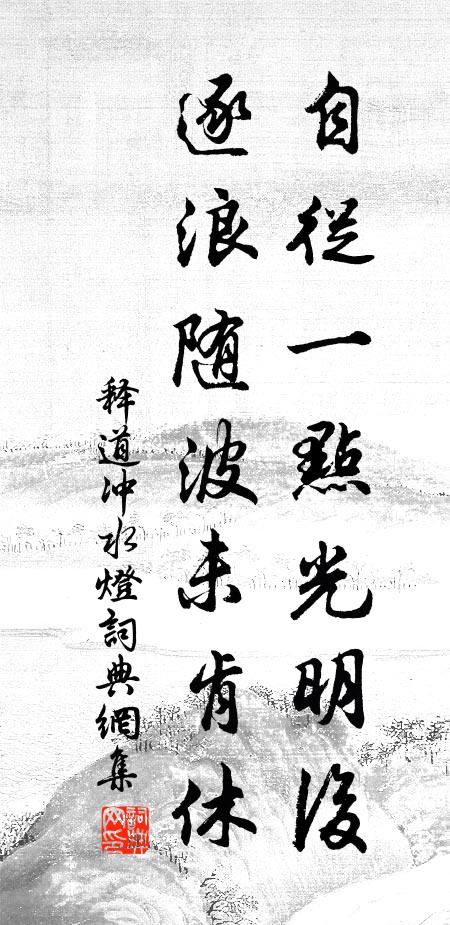 自從一點光明後
逐浪隨波未肯休
释道冲水燈詞典網集